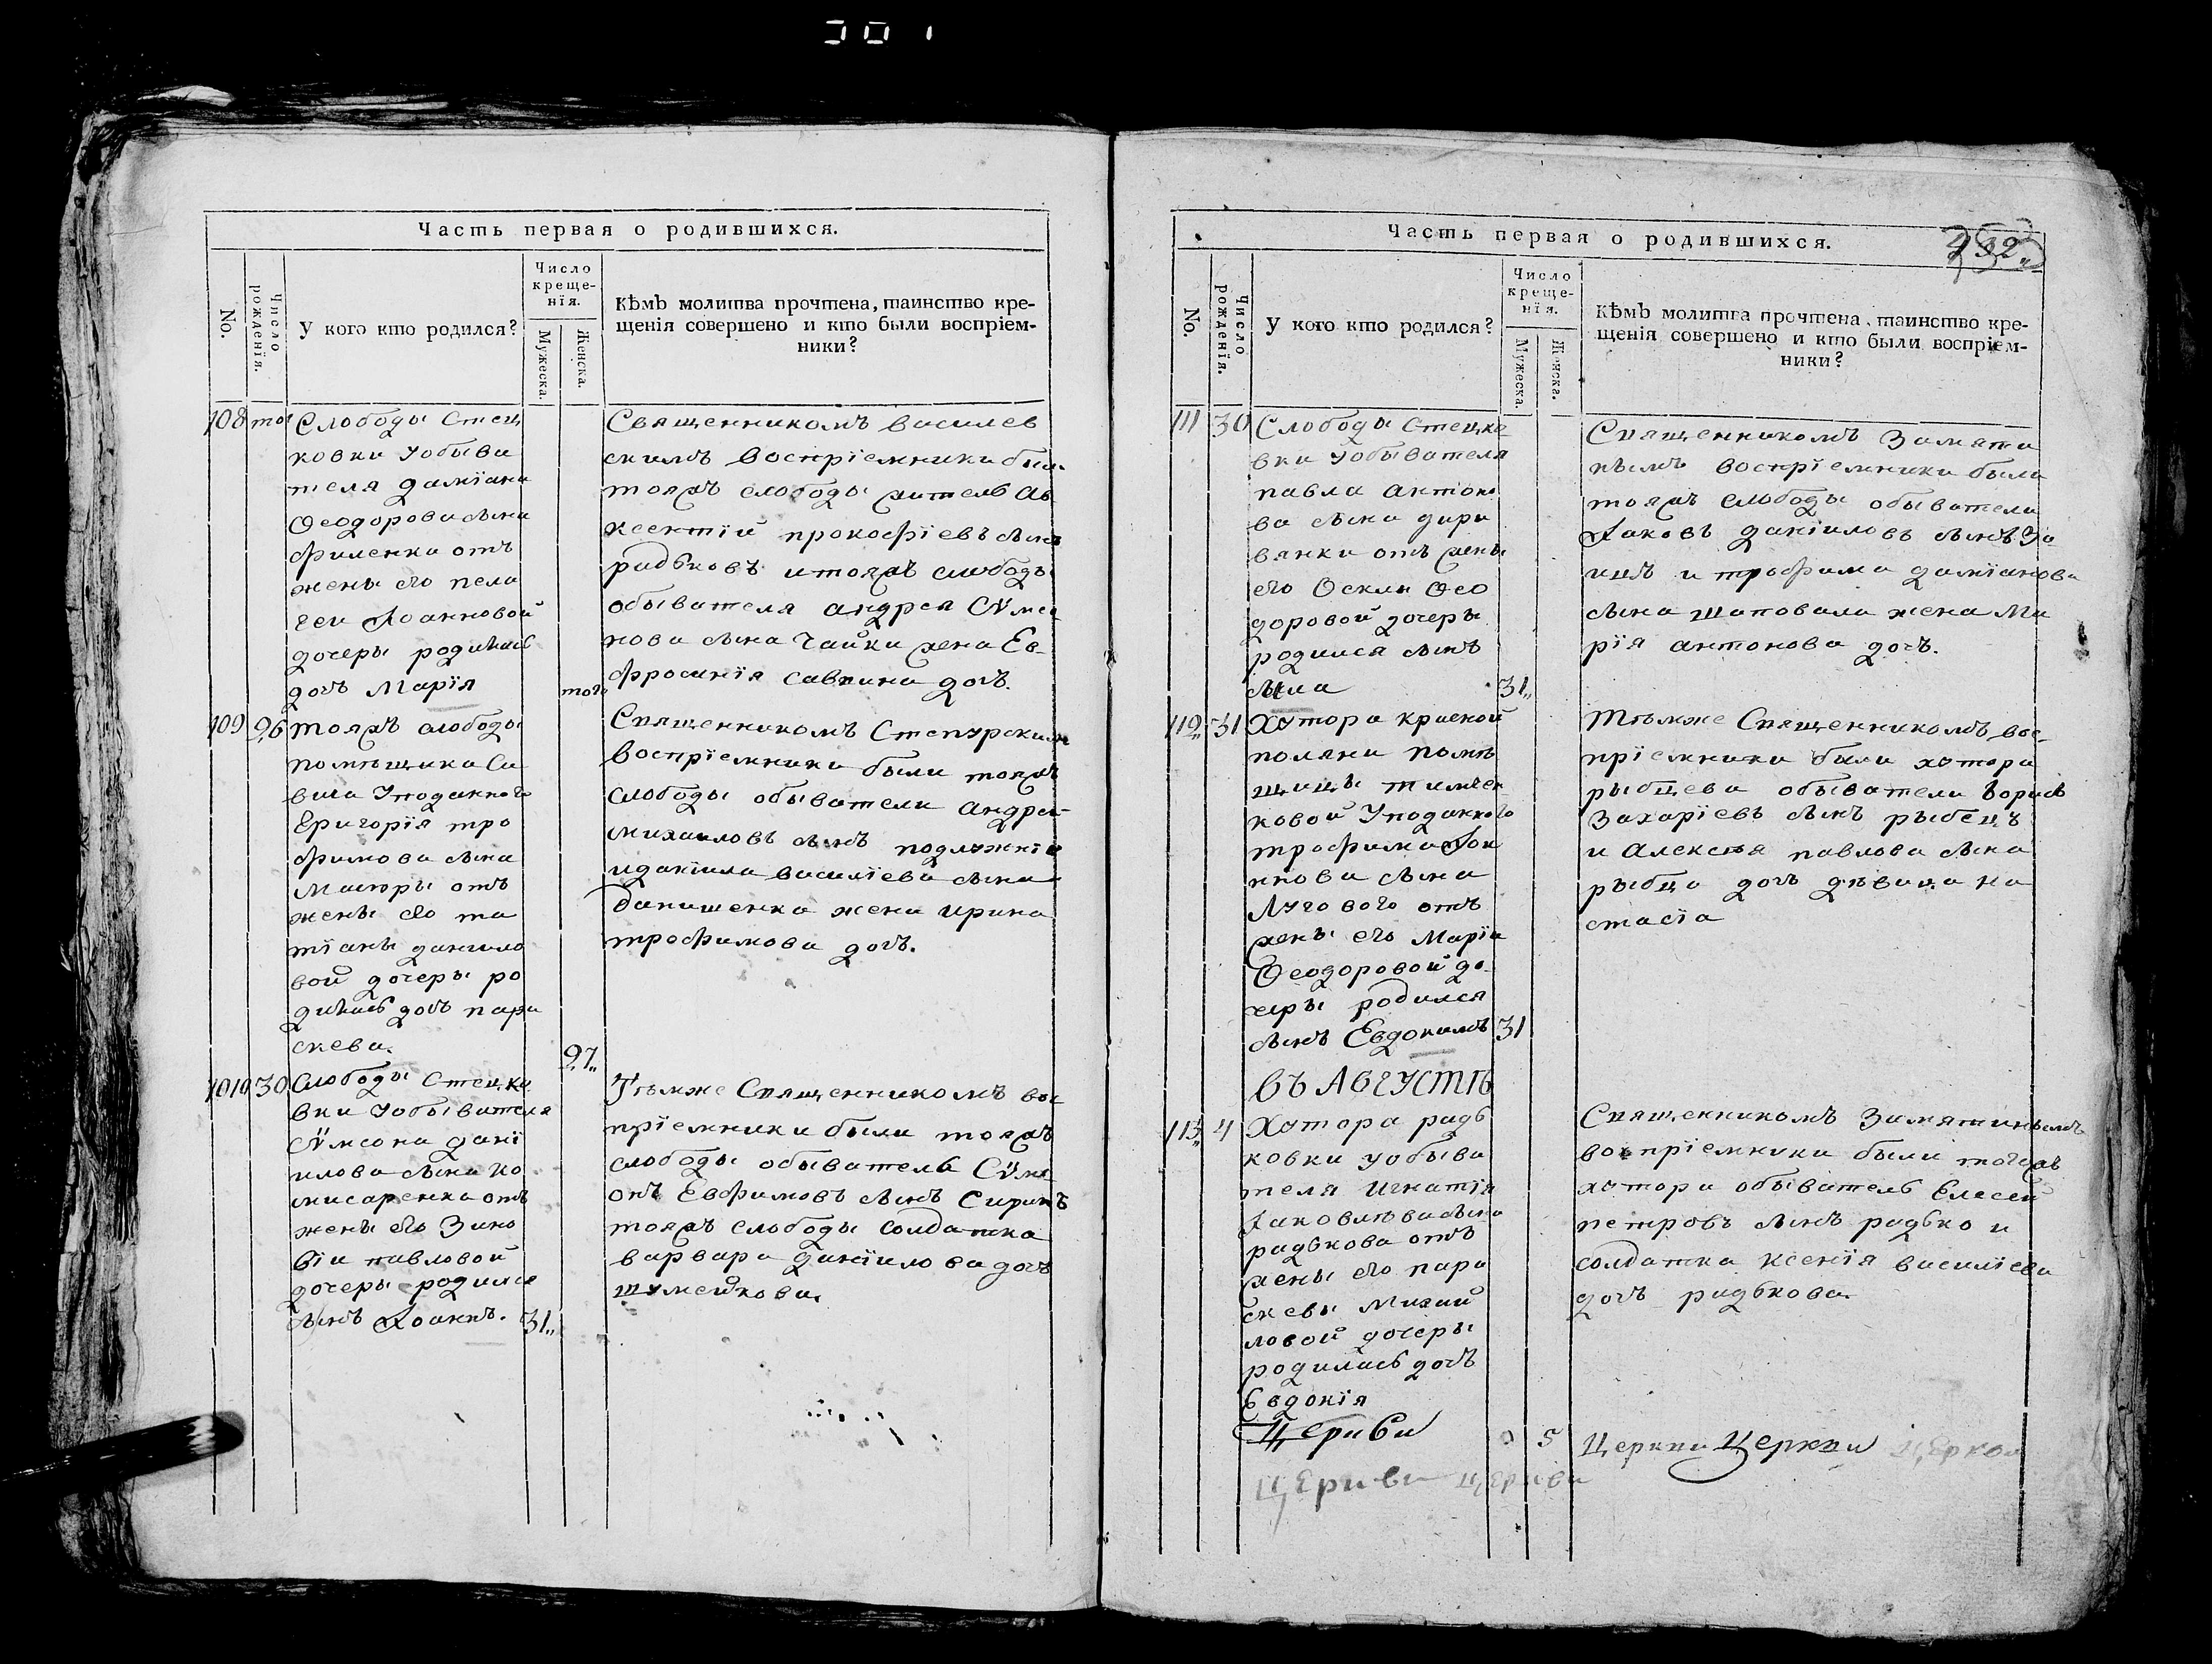 Часть первая о родившихся.
No.
Число рожденія.
У кого кто родился?
Число
креще-
нія.
Мужеска.
Женска.
Кѣмъ молитва прочтена, таинство кре-
щенія совершено и кто были воспріем-
ники?
108 тог Слободы Стец
ковки уобыва
теля даміана
Ѳеодорова сына
филенка отъ
жены его пела
геи Іоанновой
дочеры родилась
дочъ Марія
тог
Священникомъ василев
скимъ воспріемники были
тояжъ слободы житель Ав
ксентій прокофіевъ сынъ
радьковъ итояжъ слободы
обывателя андрея Сѵмео
нова сына Чайки жена Ев-
фросинія саввина дочъ.
109 26 тояжъ слободы
помѣщика Са
вича Уподаннаго
Григорія тро
фимова сына
Маюры отъ
жены его та
тіаны данило
вой дочеры ро
дилась дочъ пара
скева.
27
Священникомъ Степурскимъ
воспріемники были тояжъ
слободы обыватели андрей
михаиловъ сынъ
иданіила василіева сына
данишенка жена ирина
трофимова дочъ.
1010 30 Слободы Стецко
вки уобывателя
Сѵмеона дані
илова сына ко
мисаренка отъ
жены его Зино
віи павловой
дочеры родился
сынъ Іоаннъ. 31
Тѣмже Священникомъ вос
пріемники были тояжъ
слободы обыватель Сѵме
онъ Евфимовъ сынъ Сиринъ
тояжъ слободы солдатка
варвара даніилова дочъ
шумейкова.
Часть первая о родившихся.
432
No.
Число рожденія.
У кого кто родился?
Число
креще-
нія.
Мужеска.
Женска.
Кѣмъ молитва прочтена, таинство кре-
щенія совершено и кто были воспріем-
ники?
111 30 Слободы Стецко
вки уобывателя
павла антоно
ва сына дири
вянки отъ жены
его Ѳеклы Ѳео
доровой дочеры
родился сынъ
сила 31
Священникомъ Замяти
нымъ воспріемники были
тояжъ слободы обыватели
Іаковъ даніиловъ сынъ За-
ицъ и трофима даміанова
сына шаповала жена Ма
рія антонова дочъ.
112 31 Хутора красной
поляни помѣ
щицы тимчен
ковой Уподанного
трофима Іоа
ннова сына
Лугового отъ
жены его Маріи
Ѳеодоровой до-
черы родился
сынъ Евдокимъ 31
Тѣмже Священникомъ вос-
пріемники были хутора
рыбцева обыватели борисъ
Захаріевъ сынъ рыбецъ
и Алексѣя павлова сына
рыбца дочъ дѣвица на
стасіа
въ Августѣ
113 4 Хутора радь
ковки уобыва
теля игнатія
Іаковлѣва сына
радькова отъ
жены его пара
скевы михаи
ловой дочеры
родилась дочъ
Евдокія
5
Священникомъ Замятинымъ
воспріемники были тогожъ
хутора обыватель Елесей
петровъ сынъ радько и
солдатка ксенія василіева
дочъ радькова.
Церкви
Церкви Церкви Церкви
Церкви Церкви